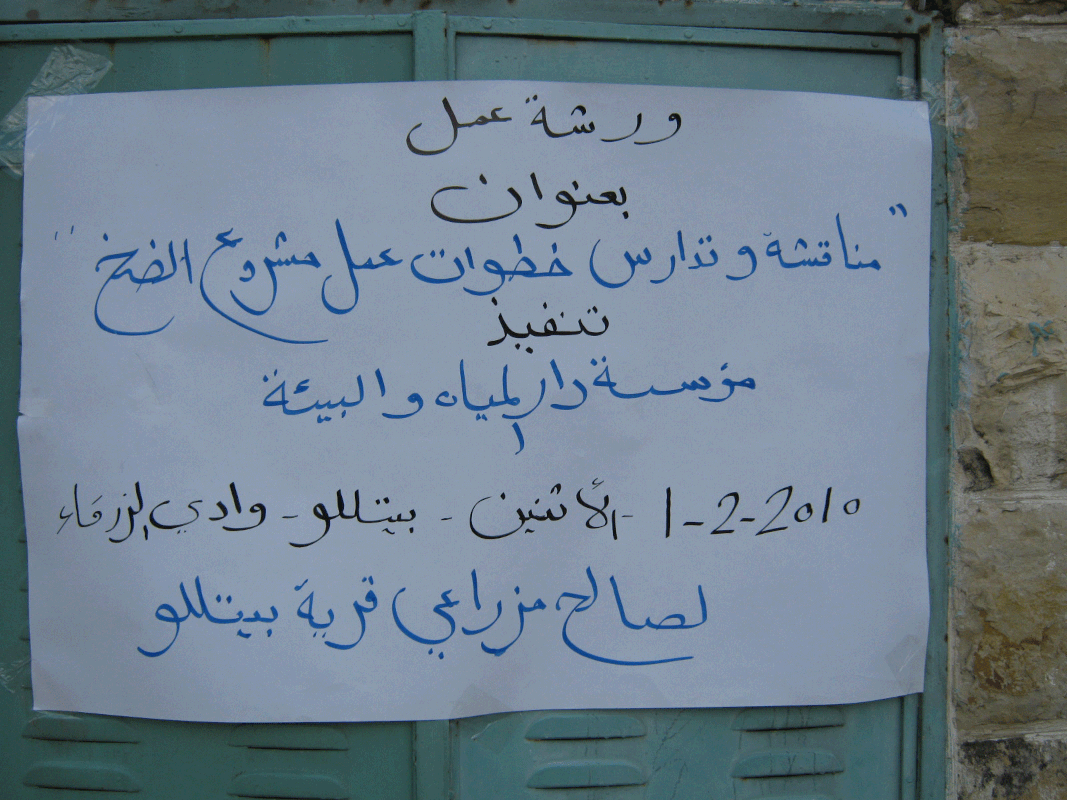 ورشة عمل
بعنوان
"مناقشة و تدارس خطوات عمل مشروع الضخ"
تنفيذ
مؤسسة دار المياه والبيئة
1-2-2010 - الأثنين - بيتللو - وادي الزرقاء
لصالح مزراعي قرية بيتللو